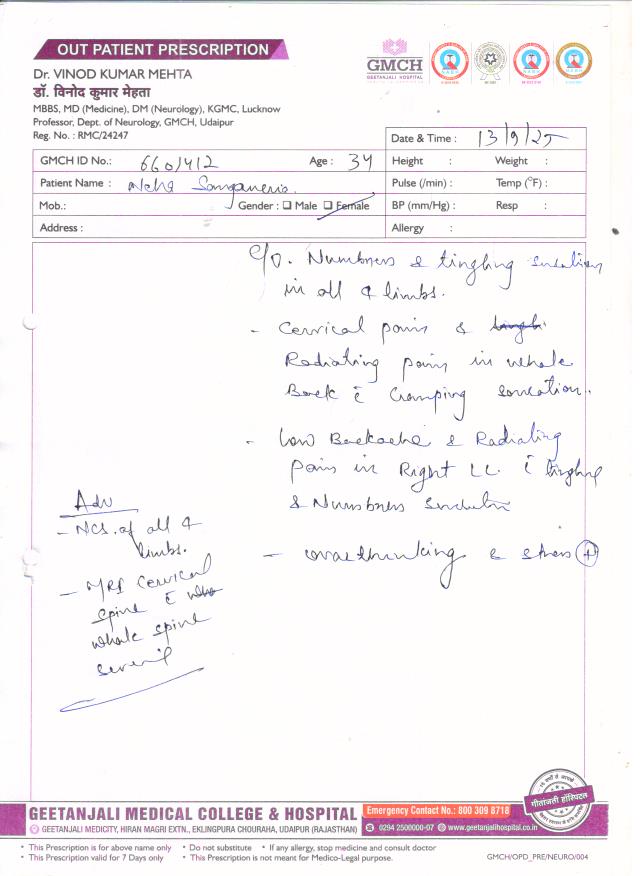 OUT PATIENT PRESCRIPTION
GMCH
GEETANJALI HOSPITAL
Dr. VINOD KUMAR MEHTA
डॉ. विनोद कुमार मेहता
MBBS, MD (Medicine), DM (Neurology), KGMC, Lucknow
Professor, Dept. of Neurology, GMCH, Udaipur
Reg. No. : RMC/24247
Date & Time : 13/9/25
GMCH ID No.: Age : 34 Height : Weight :
Patient Name : Neha Pulse (/min) : Temp (°F) :
Mob.: Gender : Male Female BP (mm/Hg) : Resp :
Address : Allergy :
C/O. Numbness & tingling sensation
in all 4 limbs.
- Cervical pain &
Radiating pain in whole
Back c̄ Cramping sensation..
- Low Backache & Radiating
pain in Right LL. c̄ tingling
& Numbness sensation
- overthinking & stress (+)
Adv
- NCS. of all 4
limbs.
- MRI cervical
spine c̄
whole spine
गीतांजली हॉस्पिटल
GEETANJALI MEDICAL COLLEGE & HOSPITAL
Emergency Contact No.: 800 309 8718
GEETANJALI MEDICITY, HIRAN MAGRI EXTN., EKLINGPURA CHOURAHA, UDAIPUR (RAJASTHAN)
0294 2500000-07 www.geetanjalihospital.co.in
* This Prescription is for above name only * Do not substitute * If any allergy, stop medicine and consult doctor
* This Prescription valid for 7 Days only * This Prescription is not meant for Medico-Legal purpose.
GMCH/OPD_PRE/NEURO/004